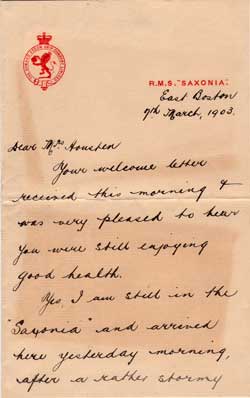 R.M.S. "SAXONIA".
East Boston
7th March, 1903.
Dear Mrs Housten
Your welcome letter
received this morning &
was very pleased to hear
you were still enjoying
good health.
Yes, I am still in the
"Saxonia" and arrived
here yesterday morning,
after a rather stormy